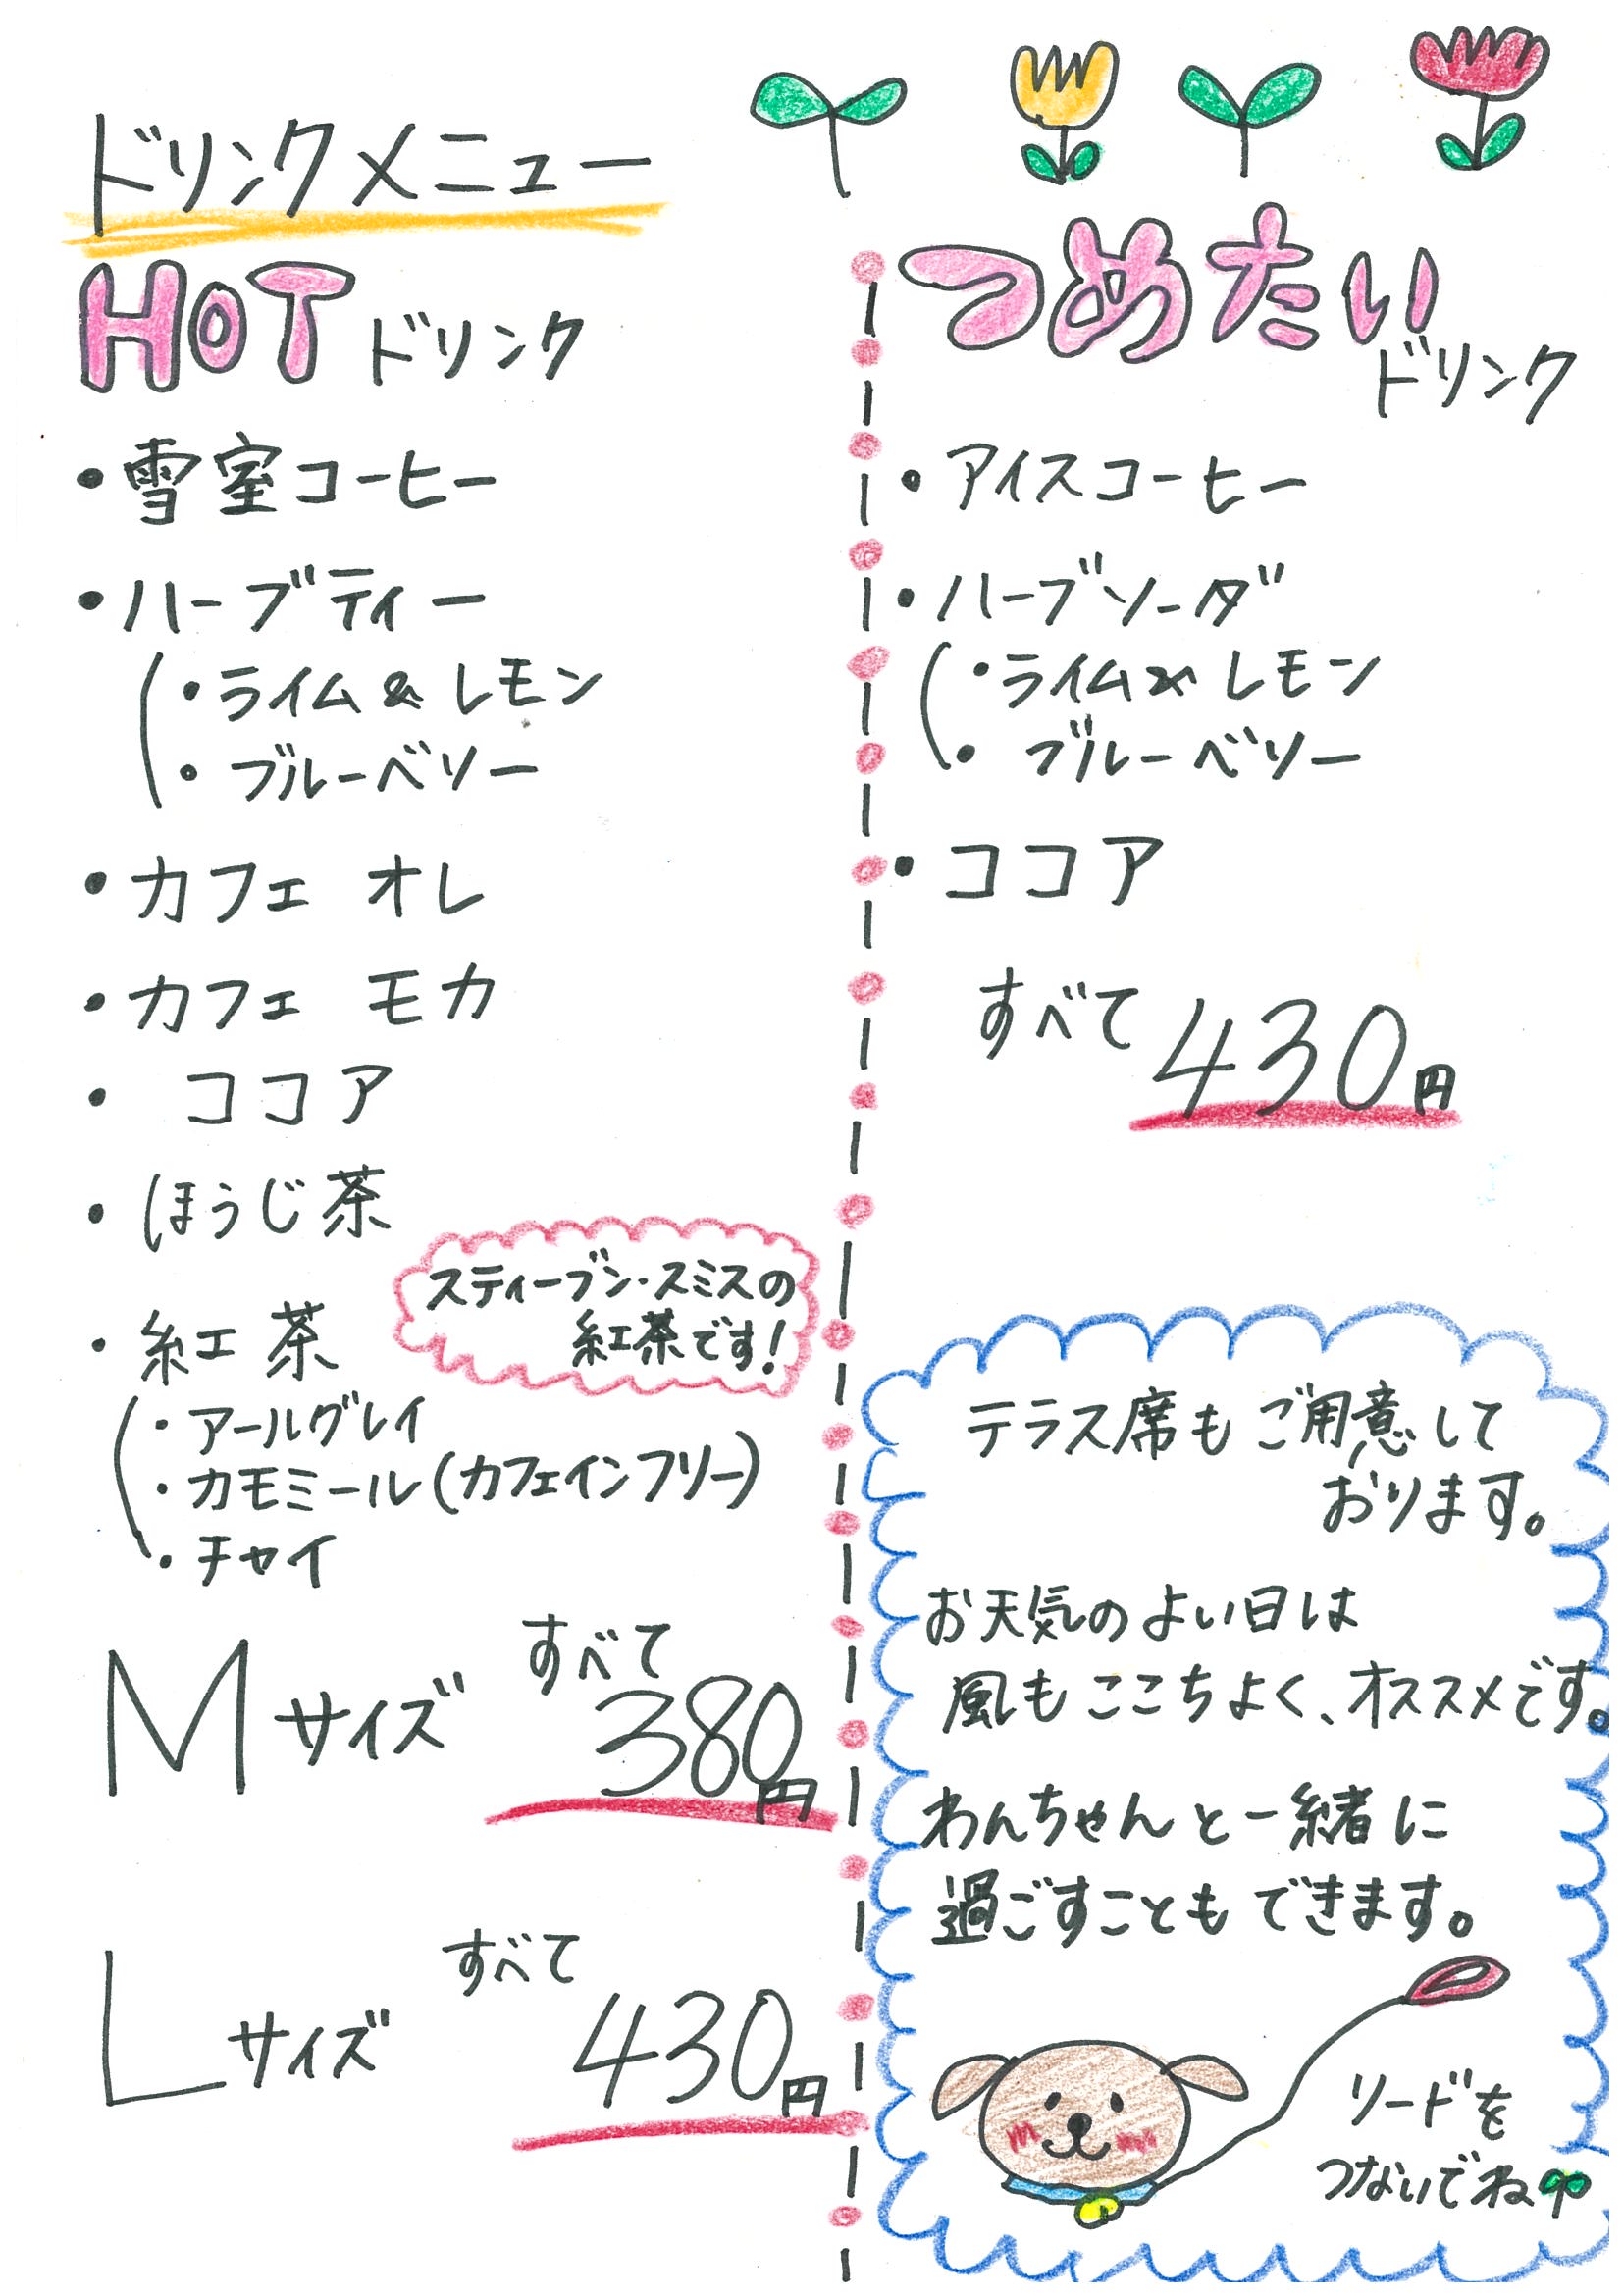 ドリンクメニュー
HOTドリンク
・雪室コーヒー
・ハーブティー
・ライム&レモン
・ブルーベリー
・カフェ オレ
・カフェ モカ
・ココア
・ほうじ茶
・紅茶
スティーブン・スミスの
紅茶です!
・アールグレイ
・カモミール(カフェインフリー)
・チャイ
Mサイズ すべて
380円
Lサイズ すべて
430円
つめたい
ドリンク
・アイスコーヒー
・ハーブソーダ
・ライム&レモン
・ブルーベリー
・ココア
すべて430円
テラス席もご用意して
おります。
お天気のよい日は
風もここちよく、オススメです。
わんちゃんと一緒に
過ごすこともできます。
リードを
つないでね